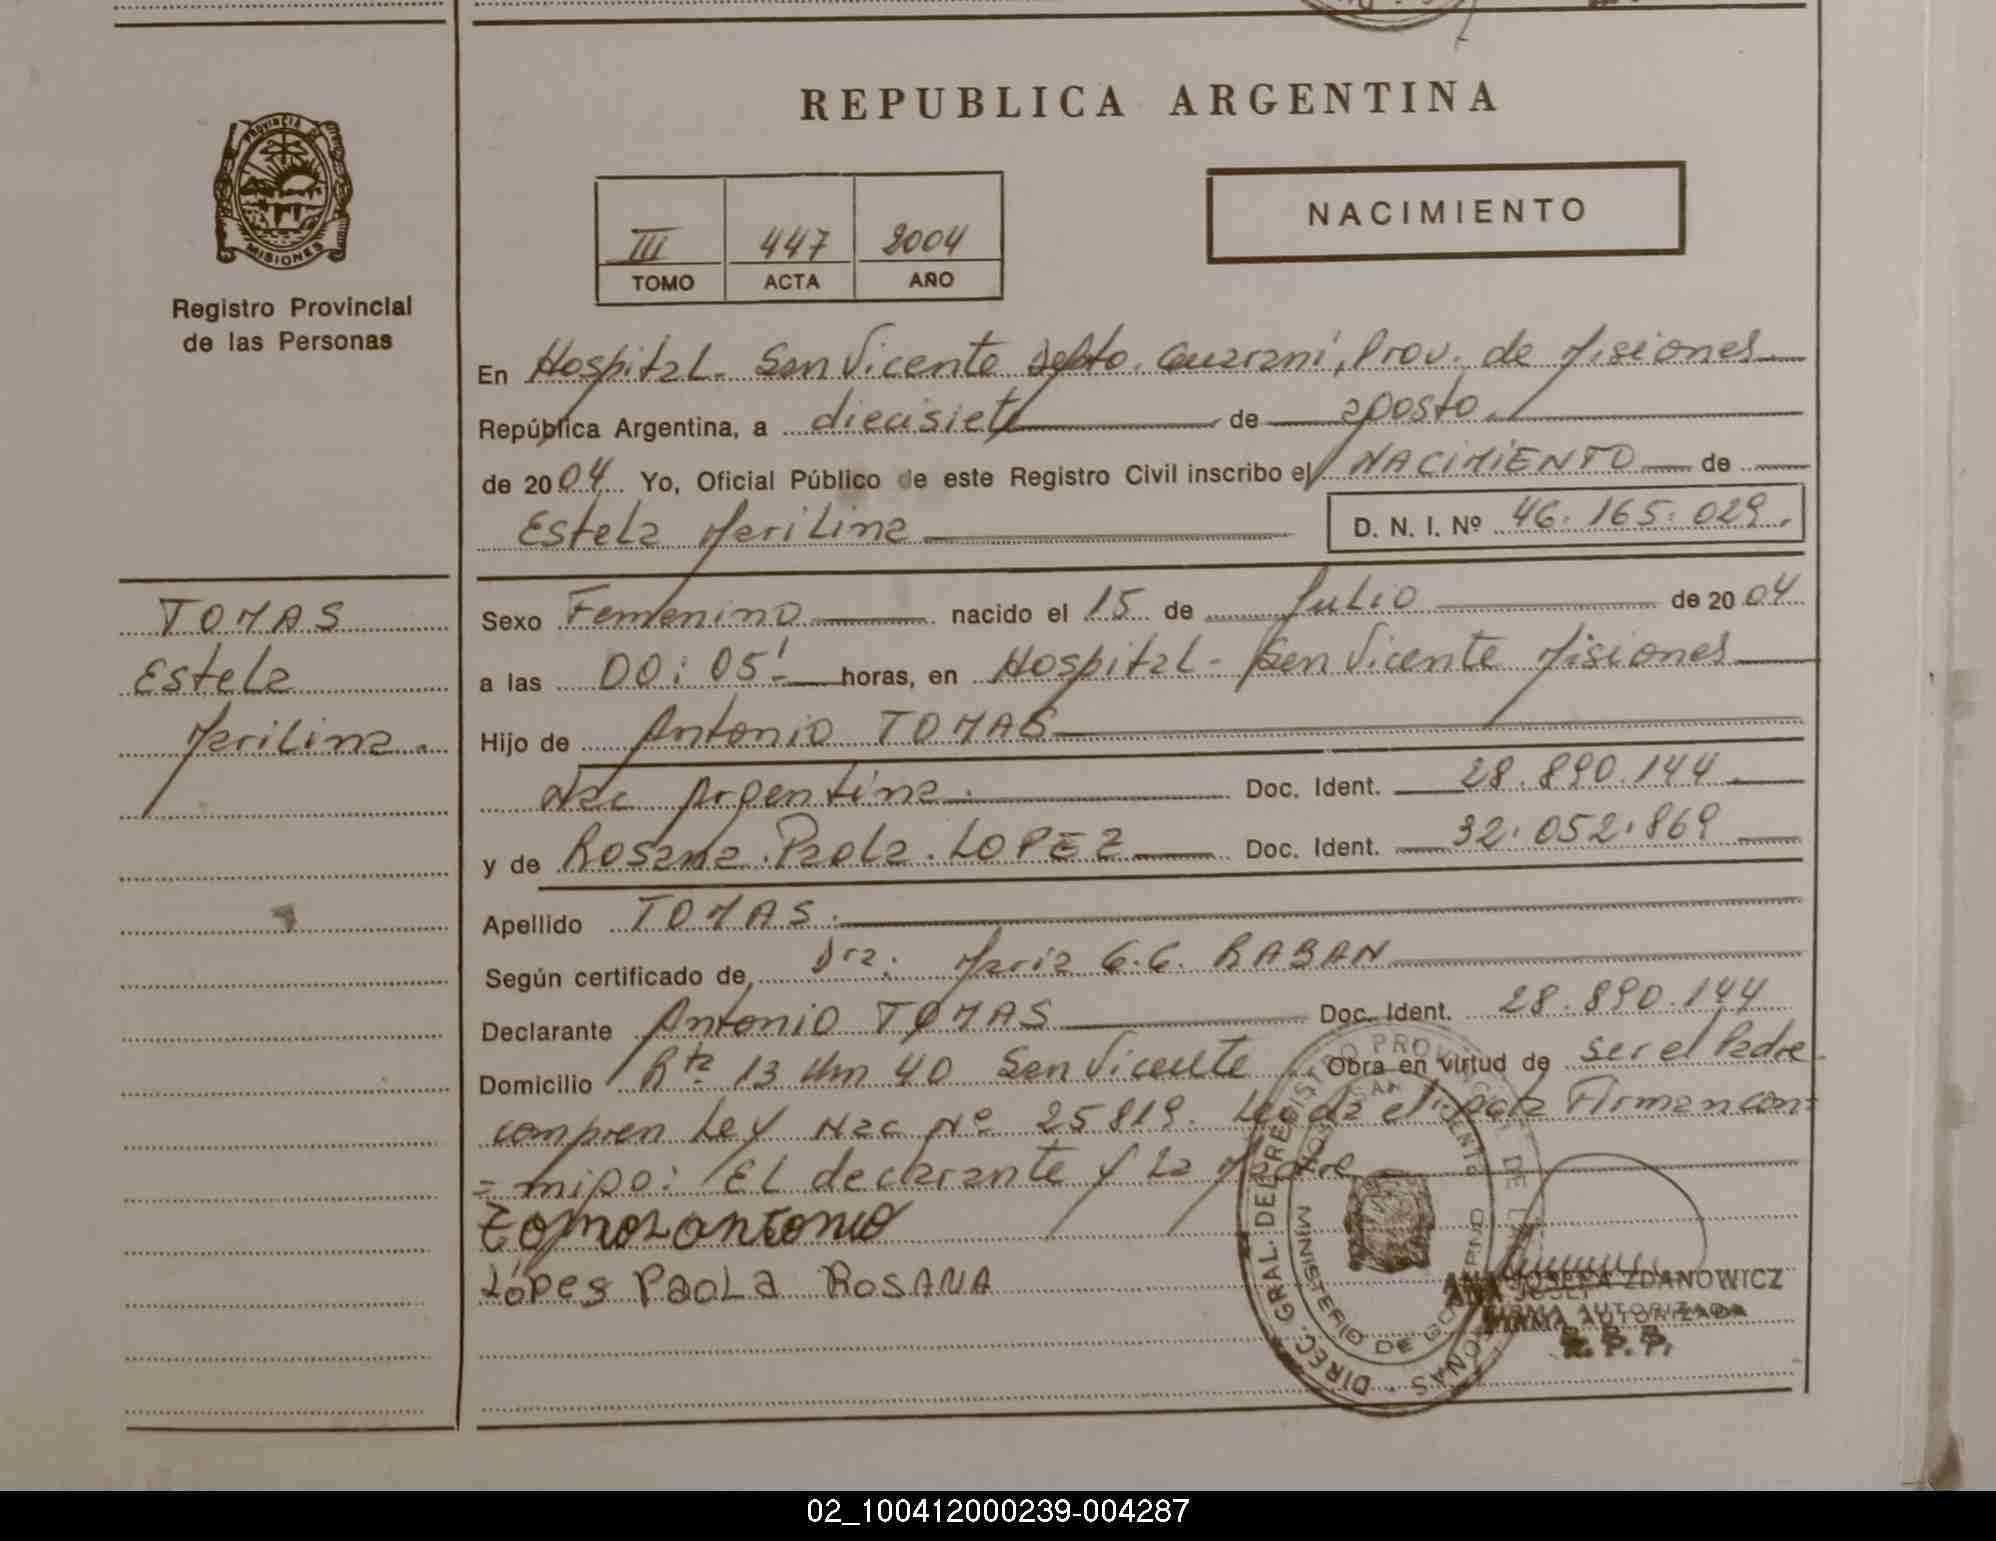 REPUBLICA ARGENTINA
PROVINCIA DE
MISIONES
Registro Provincial
de las Personas
III 447 2004
TOMO ACTA AÑO
NACIMIENTO
En Hospital - San Vicente Depto. Guarani, Prov. de Misiones
República Argentina, a diecisiete de agosto
de 2004 Yo, Oficial Público de este Registro Civil inscribo el NACIMIENTO de
Estela Marilina D. N. I. Nº 46.165.029.
TOMAS
Estela
Marilina.
Sexo Femenino nacido el 15 de Julio de 2004
a las 00:05' horas, en Hospital - San Vicente Misiones
Hijo de Antonio TOMAS
Nac Argentina. Doc. Ident. 28.890.144
y de Rosana Paola LOPEZ Doc. Ident. 32.052.869
Apellido TOMAS.
Según certificado de Dra. Maria G.G.
Declarante Antonio TOMAS Doc. Ident. 28.890.144
Domicilio Rta 13 Km 40 San Vicente Obra en virtud de ser el Padre
compren Ley Nac Nº 25819. Leida el acta Firman con=
=migo: El declarante y La Madre
tomas antonio
López PaoLa RosANA
DIREC. GRAL. DEL REGISTRO PROVINCIAL DE LAS PERSONAS
MINISTERIO DE GOBIERNO
SAN VICENTE
ANA JOSEFA ZDANOWICZ
FIRMA AUTORIZADA
02_100412000239-004287